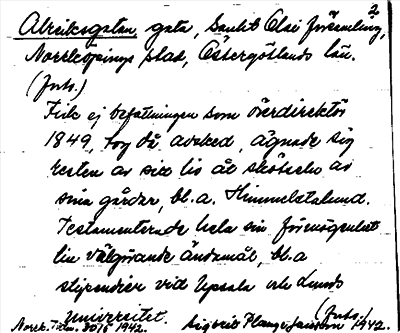 2
Alreiksgatan, gata, Sankt Olai församling,
Norrköpings stad, Östergötlands län.
(Forts.)
Fick ej befattningen som överdirektör
1849, tog då avsked, ägnade sig
resten av sitt liv åt skötseln av
sina gårder, bl.a. Himmelstalund.
Testamenterade hela sin förmögenhet
till välgörande ändamål, bl.a
stipendier vid Upsala och Lunds
Universitet. (Forts.)
Norrk. Tidn. 30/5 1942. Sigbrit Plange Jansson 1942.